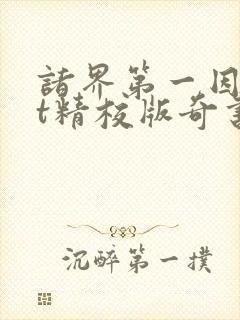 諸界第一因
t精校版奇書
沉醉第一撲